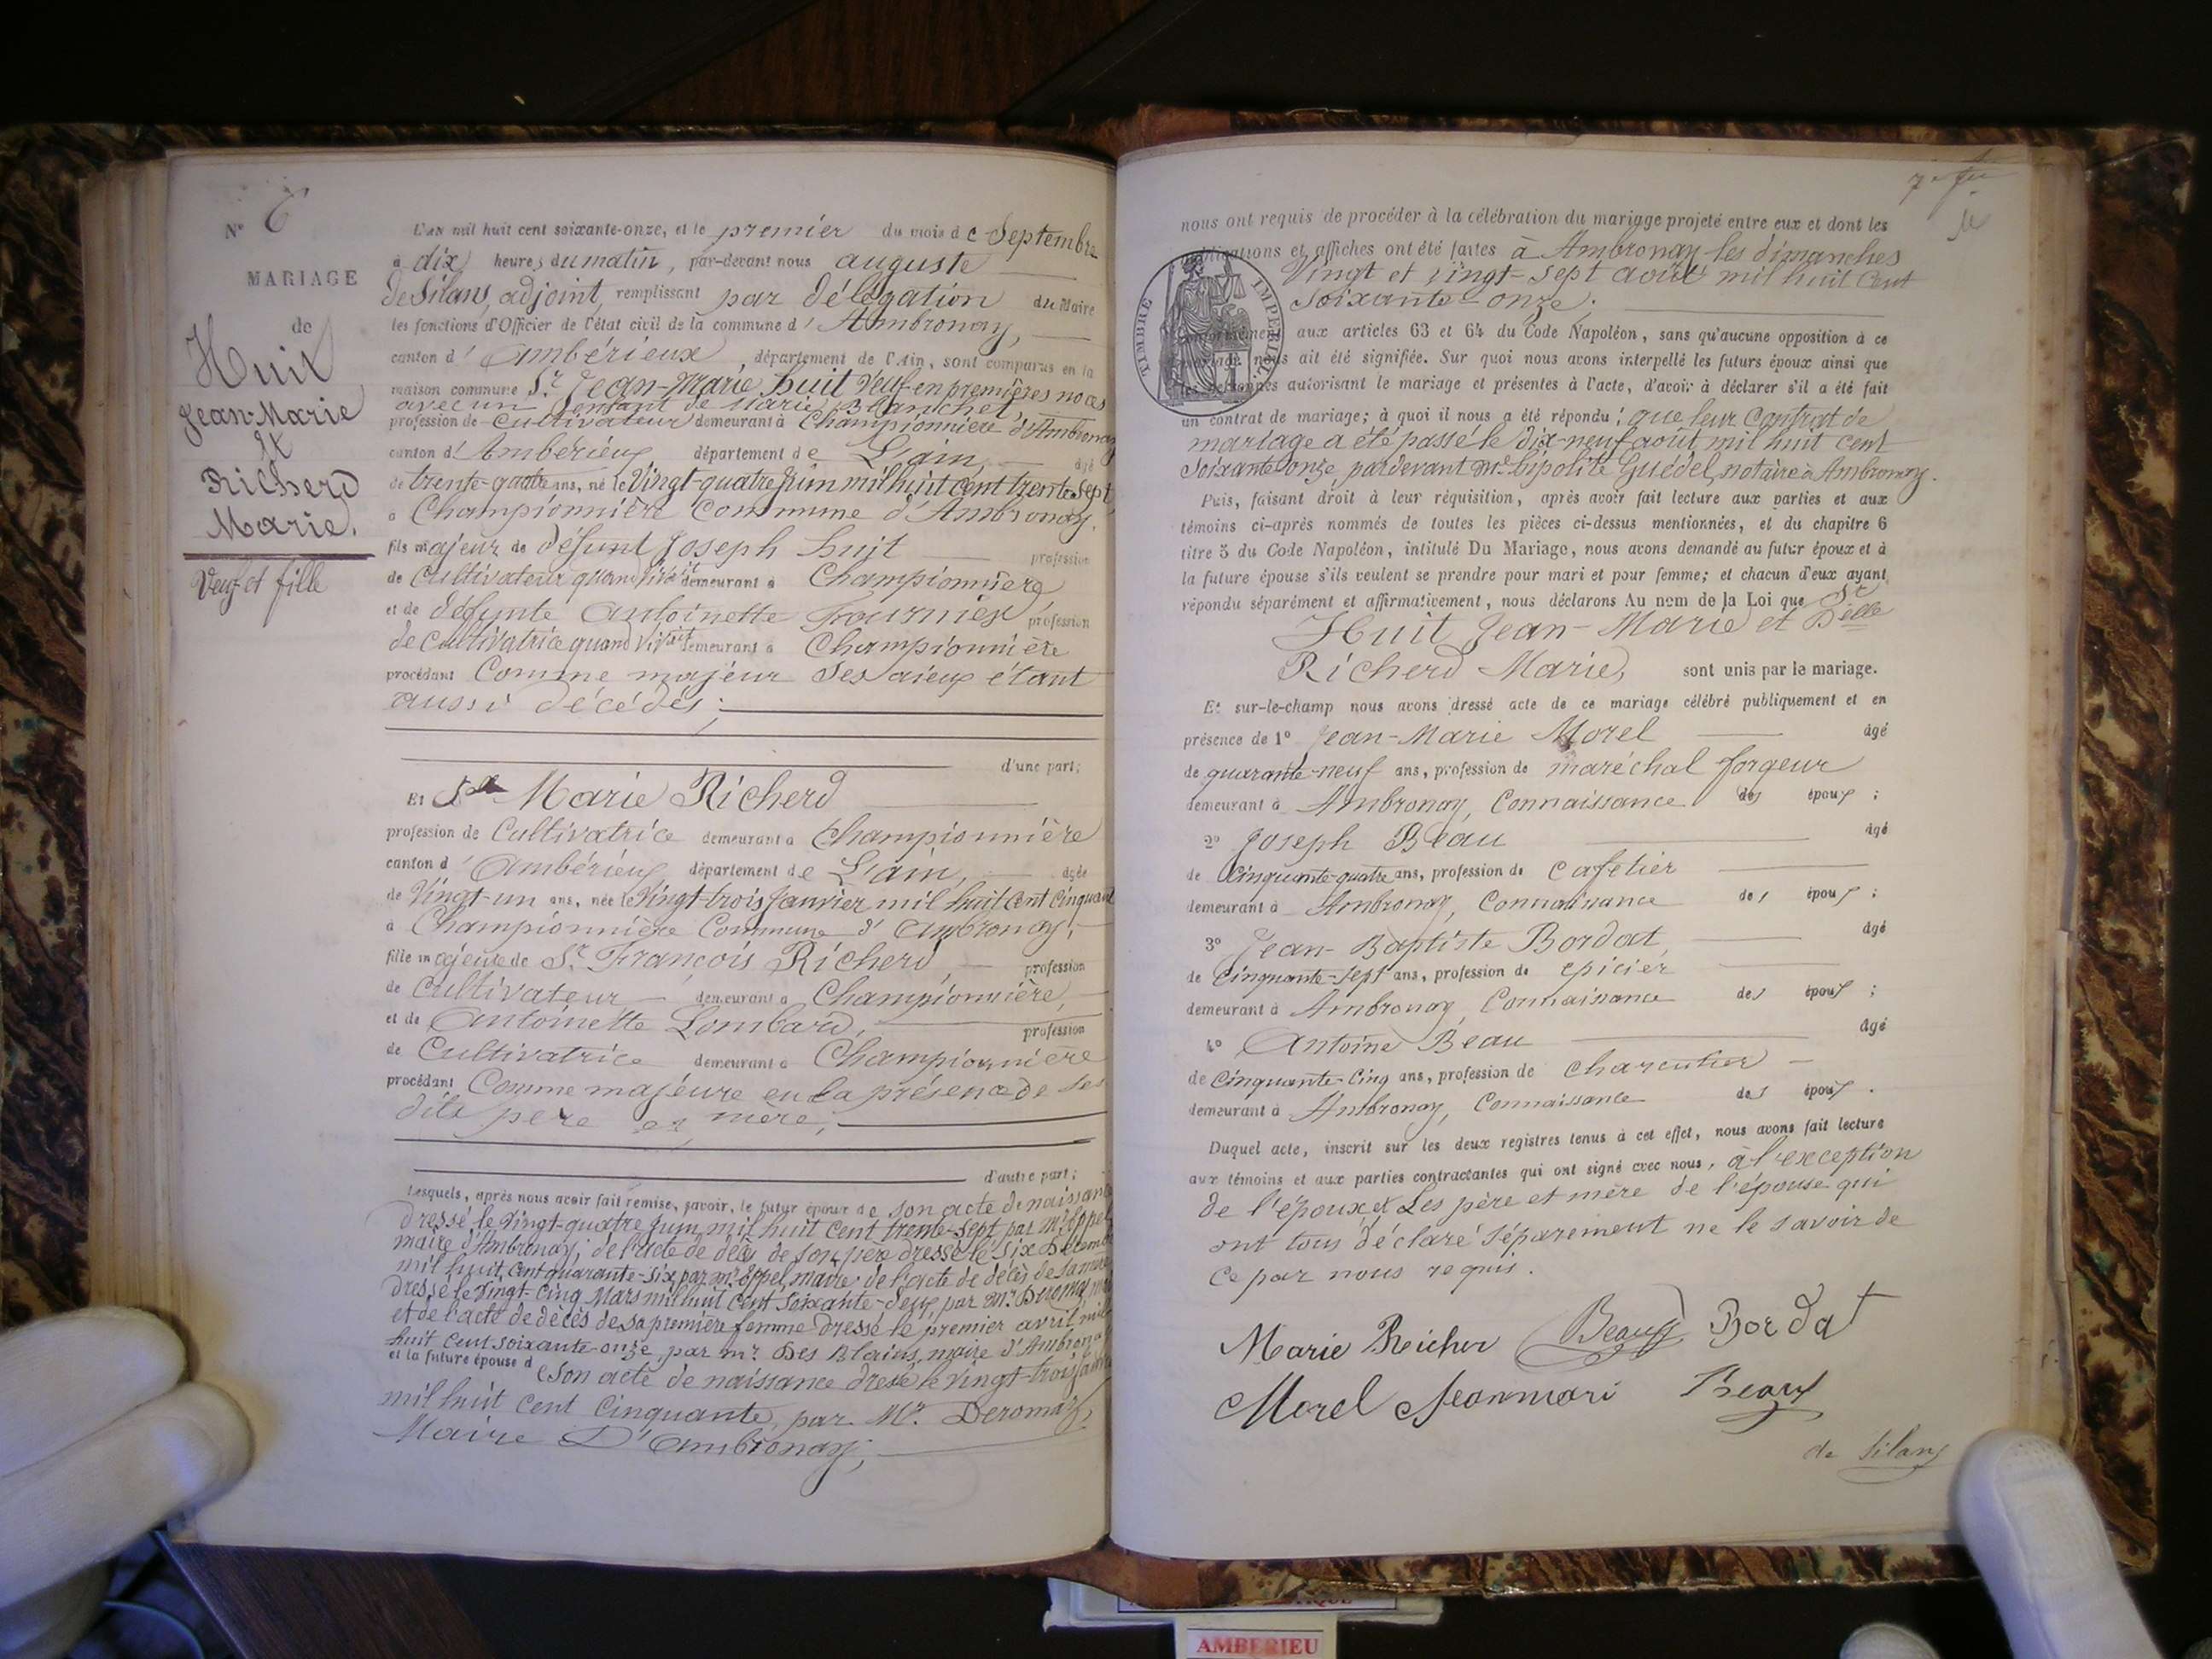 N° 6
MARIAGE
de
Huit
Jean-Marie
Et
Richerd
Marie.
Veuf et fille
L'an mil huit cent soixante-onze, et le premier du mois de Septembre
à dix heures du matin, par-devant nous auguste
de Silans, adjoint, remplissant par délégation du Maire
les fonctions d'Officier de l'état civil de la commune d'Ambronay,
canton d'Ambérieux, département de l'Ain, sont comparus en la
maison commune Sr Jean-Marie huit Veuf en premières noces
avec un enfant de Marie Blanchet,
profession de Cultivateur demeurant à Championnière d'Ambronay
canton d'Ambérieux département de L'ain, âgé
de trente-quatre ans, né le Vingt-quatre Juin mil huit cent trente sept
à Championnière Commune d'Ambronay.
fils majeur de défunt Joseph huit profession
de Cultivateur quand vivait demeurant à Championnière,
et de défunte Antoinette Fournier, profession
de Cultivatrice quand Vivait demeurant à Championnière
procédant Comme majeur Ses aieux étant
aussi décédés;
d'une part;
Et Dlle Marie Richerd
profession de Cultivatrice demeurant à Championnière
canton d'Ambérieux département de L'ain, âgée
de Vingt-un ans, née le Vingt-trois Janvier mil huit Cent Cinquante
à Championnière Commune d'Ambronay;
fille majeure de Sr François Richerd, profession
de Cultivateur demeurant à Championnière,
et de Antoinette Lombard, profession
de Cultivatrice demeurant à Championnière
procédant Comme majeure en la présence de ses
dits père et mère,
d'autre part;
Lesquels, après nous avoir fait remise, savoir, le futur époux de son acte de naissance
dressé le Vingt-quatre Juin mil huit cent trente-sept par Mr Eppel
maire d'Ambronay; de l'acte de décès de son père dressé le six Décembre
mil huit cent quarante-six par mr Eppel, maire de l'acte de décès de sa mère
dressé le Vingt-Cinq Mars mil huit Cent Soixante-deux, par Mr Deromas
et de l'acte de décès de sa première femme dressé le premier avril mil
huit cent soixante-onze, par mr Des Blains, maire d'Ambronay
et la future épouse de Son acte de naissance dressé le Vingt-trois Janvier
mil huit Cent Cinquante, par Mr. Deromas,
Maire D'Ambronay;
7e fet
nous ont requis de procéder à la célébration du mariage projeté entre eux et dont les
publications et affiches ont été faites à Ambronay les dimanches
Vingt et Vingt-sept août mil huit Cent
soixante-onze;
TIMBRE IMPERIAL
Conformément aux articles 63 et 64 du Code Napoléon, sans qu'aucune opposition à ce
mariage nous ait été signifiée. Sur quoi nous avons interpellé les futurs époux ainsi que
les personnes autorisant le mariage et présentes à l'acte, d'avoir à déclarer s'il a été fait
un contrat de mariage; à quoi il nous a été répondu: que leur Contrat de
mariage a été passé le dix-neuf août mil huit cent
Soixante onze, pardevant Me hipolite Guédel, notaire à Ambronay.
Puis, faisant droit à leur réquisition, après avoir fait lecture aux parties et aux
témoins ci-après nommés de toutes les pièces ci-dessus mentionnées, et du chapitre 6
titre 5 du Code Napoléon, intitulé Du Mariage, nous avons demandé au futur époux et à
la future épouse s'ils veulent se prendre pour mari et pour femme; et chacun d'eux ayant
répondu séparément et affirmativement, nous déclarons Au nom de la Loi que Sr
Huit Jean-Marie et Delle
Richerd Marie, sont unis par le mariage.
Et sur-le-champ nous avons dressé acte de ce mariage célébré publiquement et en
présence de 1° Jean-Marie Morel âgé
de quarante-neuf ans, profession de maréchal forgeur
demeurant à Ambronay, Connaissance des époux;
2° Joseph Beau âgé
de Cinquante-quatre ans, profession de Cafetier
demeurant à Ambronay, Connaissance des époux;
3° Jean-Baptiste Bordat, âgé
de Cinquante-sept ans, profession de épicier
demeurant à Ambronay, Connaissance des époux;
4° Antoine Beau âgé
de Cinquante-Cinq ans, profession de Charcutier
demeurant à Ambronay, Connaissance des époux.
Duquel acte, inscrit sur les deux registres tenus à cet effet, nous avons fait lecture
aux témoins et aux parties contractantes qui ont signé avec nous, à l'exception
de l'époux et Les père et mère de l'épouse qui
ont tous déclaré séparement ne le savoir de
Ce par nous requis.
Marie Richer Beaux Bordat
Morel Jeanmari Beaux
de Silans
AMBERIEU